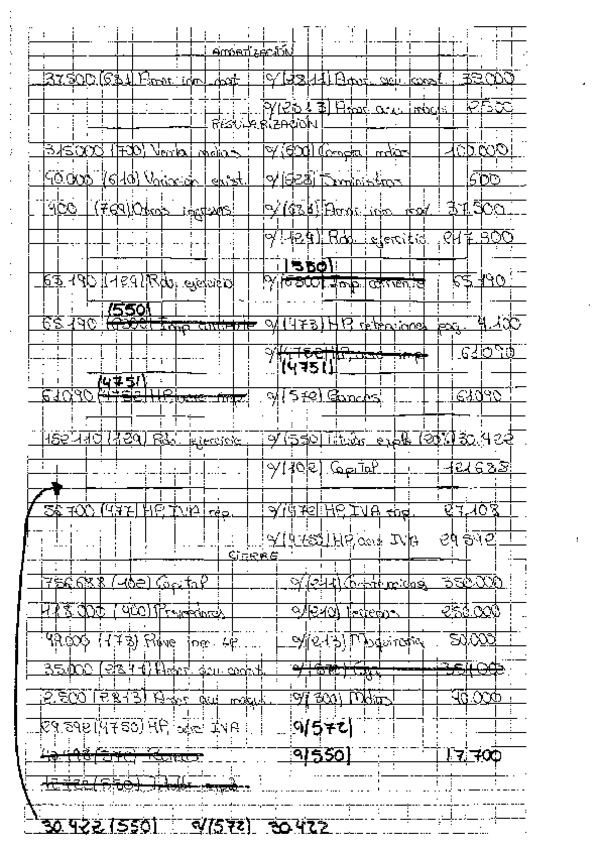 AMORTIZACIÓN
37.500 (681) Amor inm mat a/(2811) Amor acu const. 35.000
a/(2813) Amor acu maqui 2.500
REGULARIZACIÓN
315.000 (700) Venta mdías a/(600) Compra mdías 100.000
40.000 (610) Variación exist. a/(628) Suministros 600
400 (769) Otros ingresos a/(681) Amor inm mat 37.500
a/(129) Rdo. ejercicio 217.300
(550)
65.190 (129) Rdo. ejercicio a/(6300) Imp. corriente 65.190
(550)
65.190 (6300) Imp. corriente a/(473) HP, retenciones pag. 4.100
a/(4752) HP, acre imp. 61.090
(4751) (4751)
61.090 (4752) HP, acre imp. a/(572) Bancos 61.090
152.110 (129) Rdo. ejercicio a/(550) Titular expl. (20%) 30.422
a/(102) Capital 121.688
56.700 (477) HP, IVA rep. a/(472) HP, IVA sop. 27.108
a/(4750) HP, acre IVA 29.592
CIERRE
756.688 (102) Capital a/(211) Construcciones 350.000
418.000 (400) Proveedores a/(210) Terrenos 250.000
49.000 (173) Prove inm LP a/(213) Maquinaria 50.000
35.000 (2811) Amor acu const.
2.500 (2813) Amor acu maqui. a/(300) Mdías 40.000
29.592 (4750) HP, acre IVA a/(572)
a/(550) 17.700
30.422 (550) a/(572) 30.422